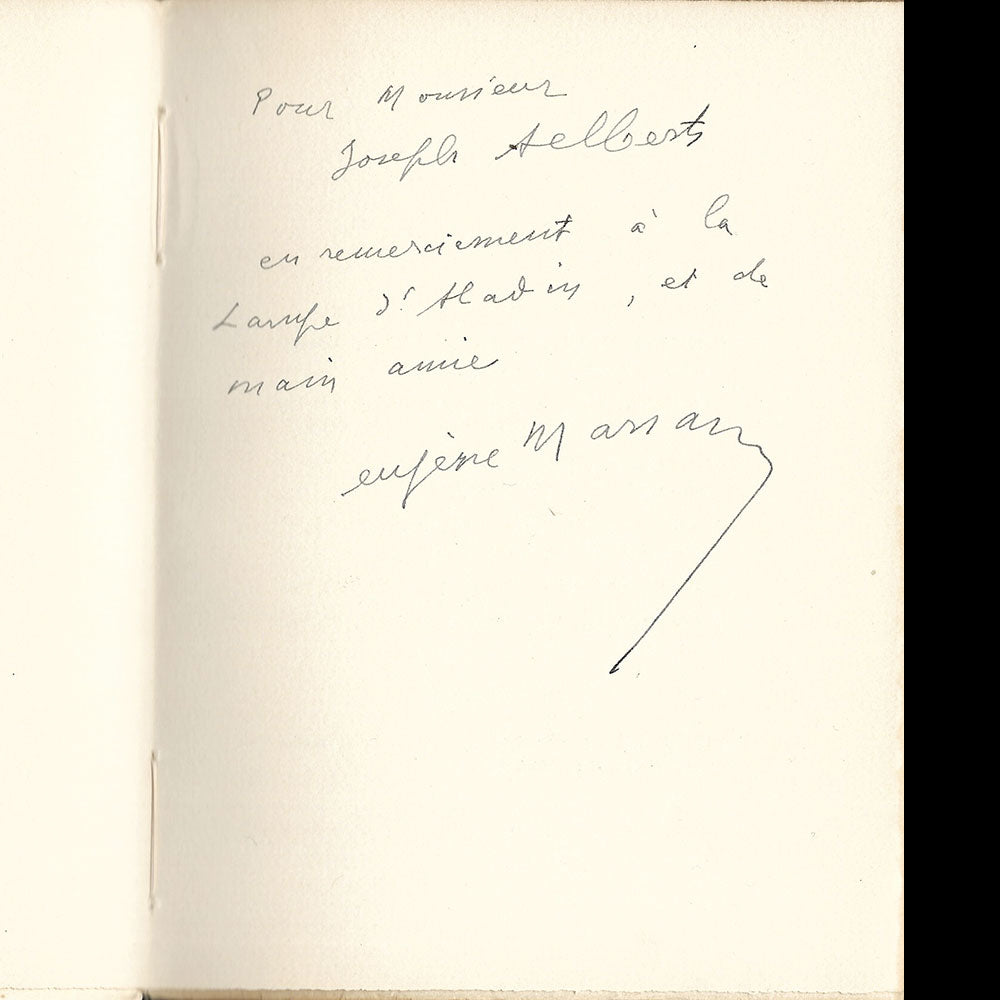 Pour Monsieur
Joseph Aelberts
en remerciement à la
Lampe d'Aladin, et de
main amie
eugène Marsan